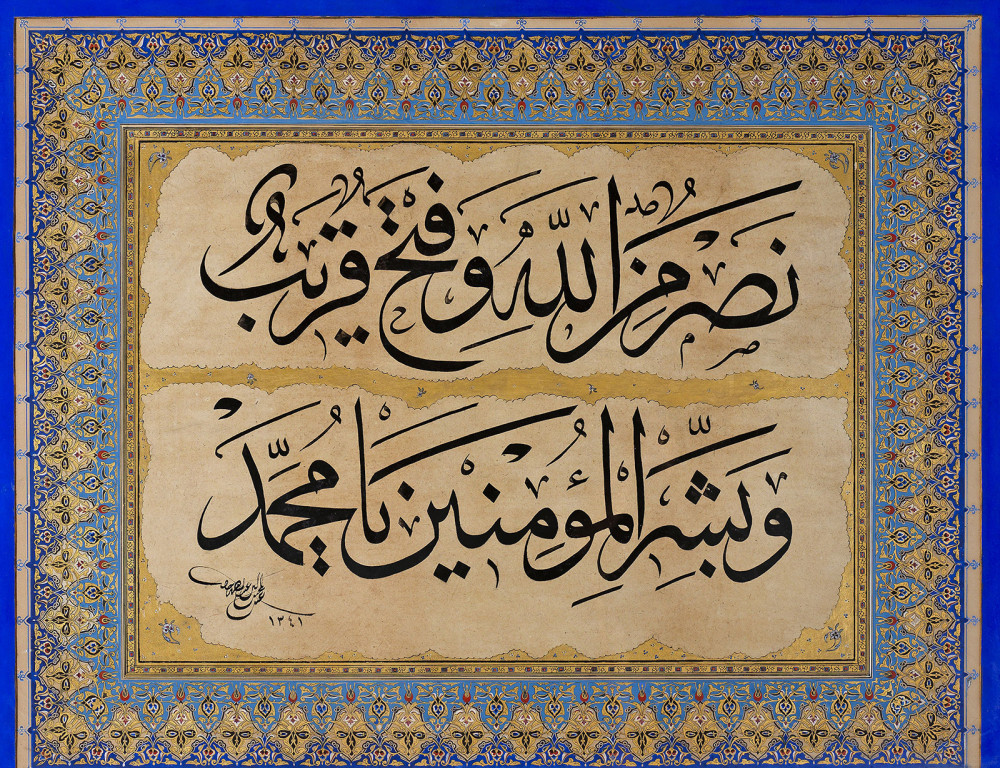 نَصْرٌ مِنَ اللّٰهِ وَفَتْحٌ قَرِيبٌ
وَبَشِّرِ الْمُؤْمِنِينَ يَا مُحَمَّدُ
١٢٤١